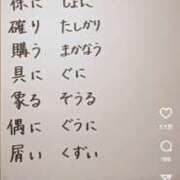 保に しょに
確り たしかり
購う まかなう
具に ぐに
象る ぞうる
偶に ぐうに
屑い くずい